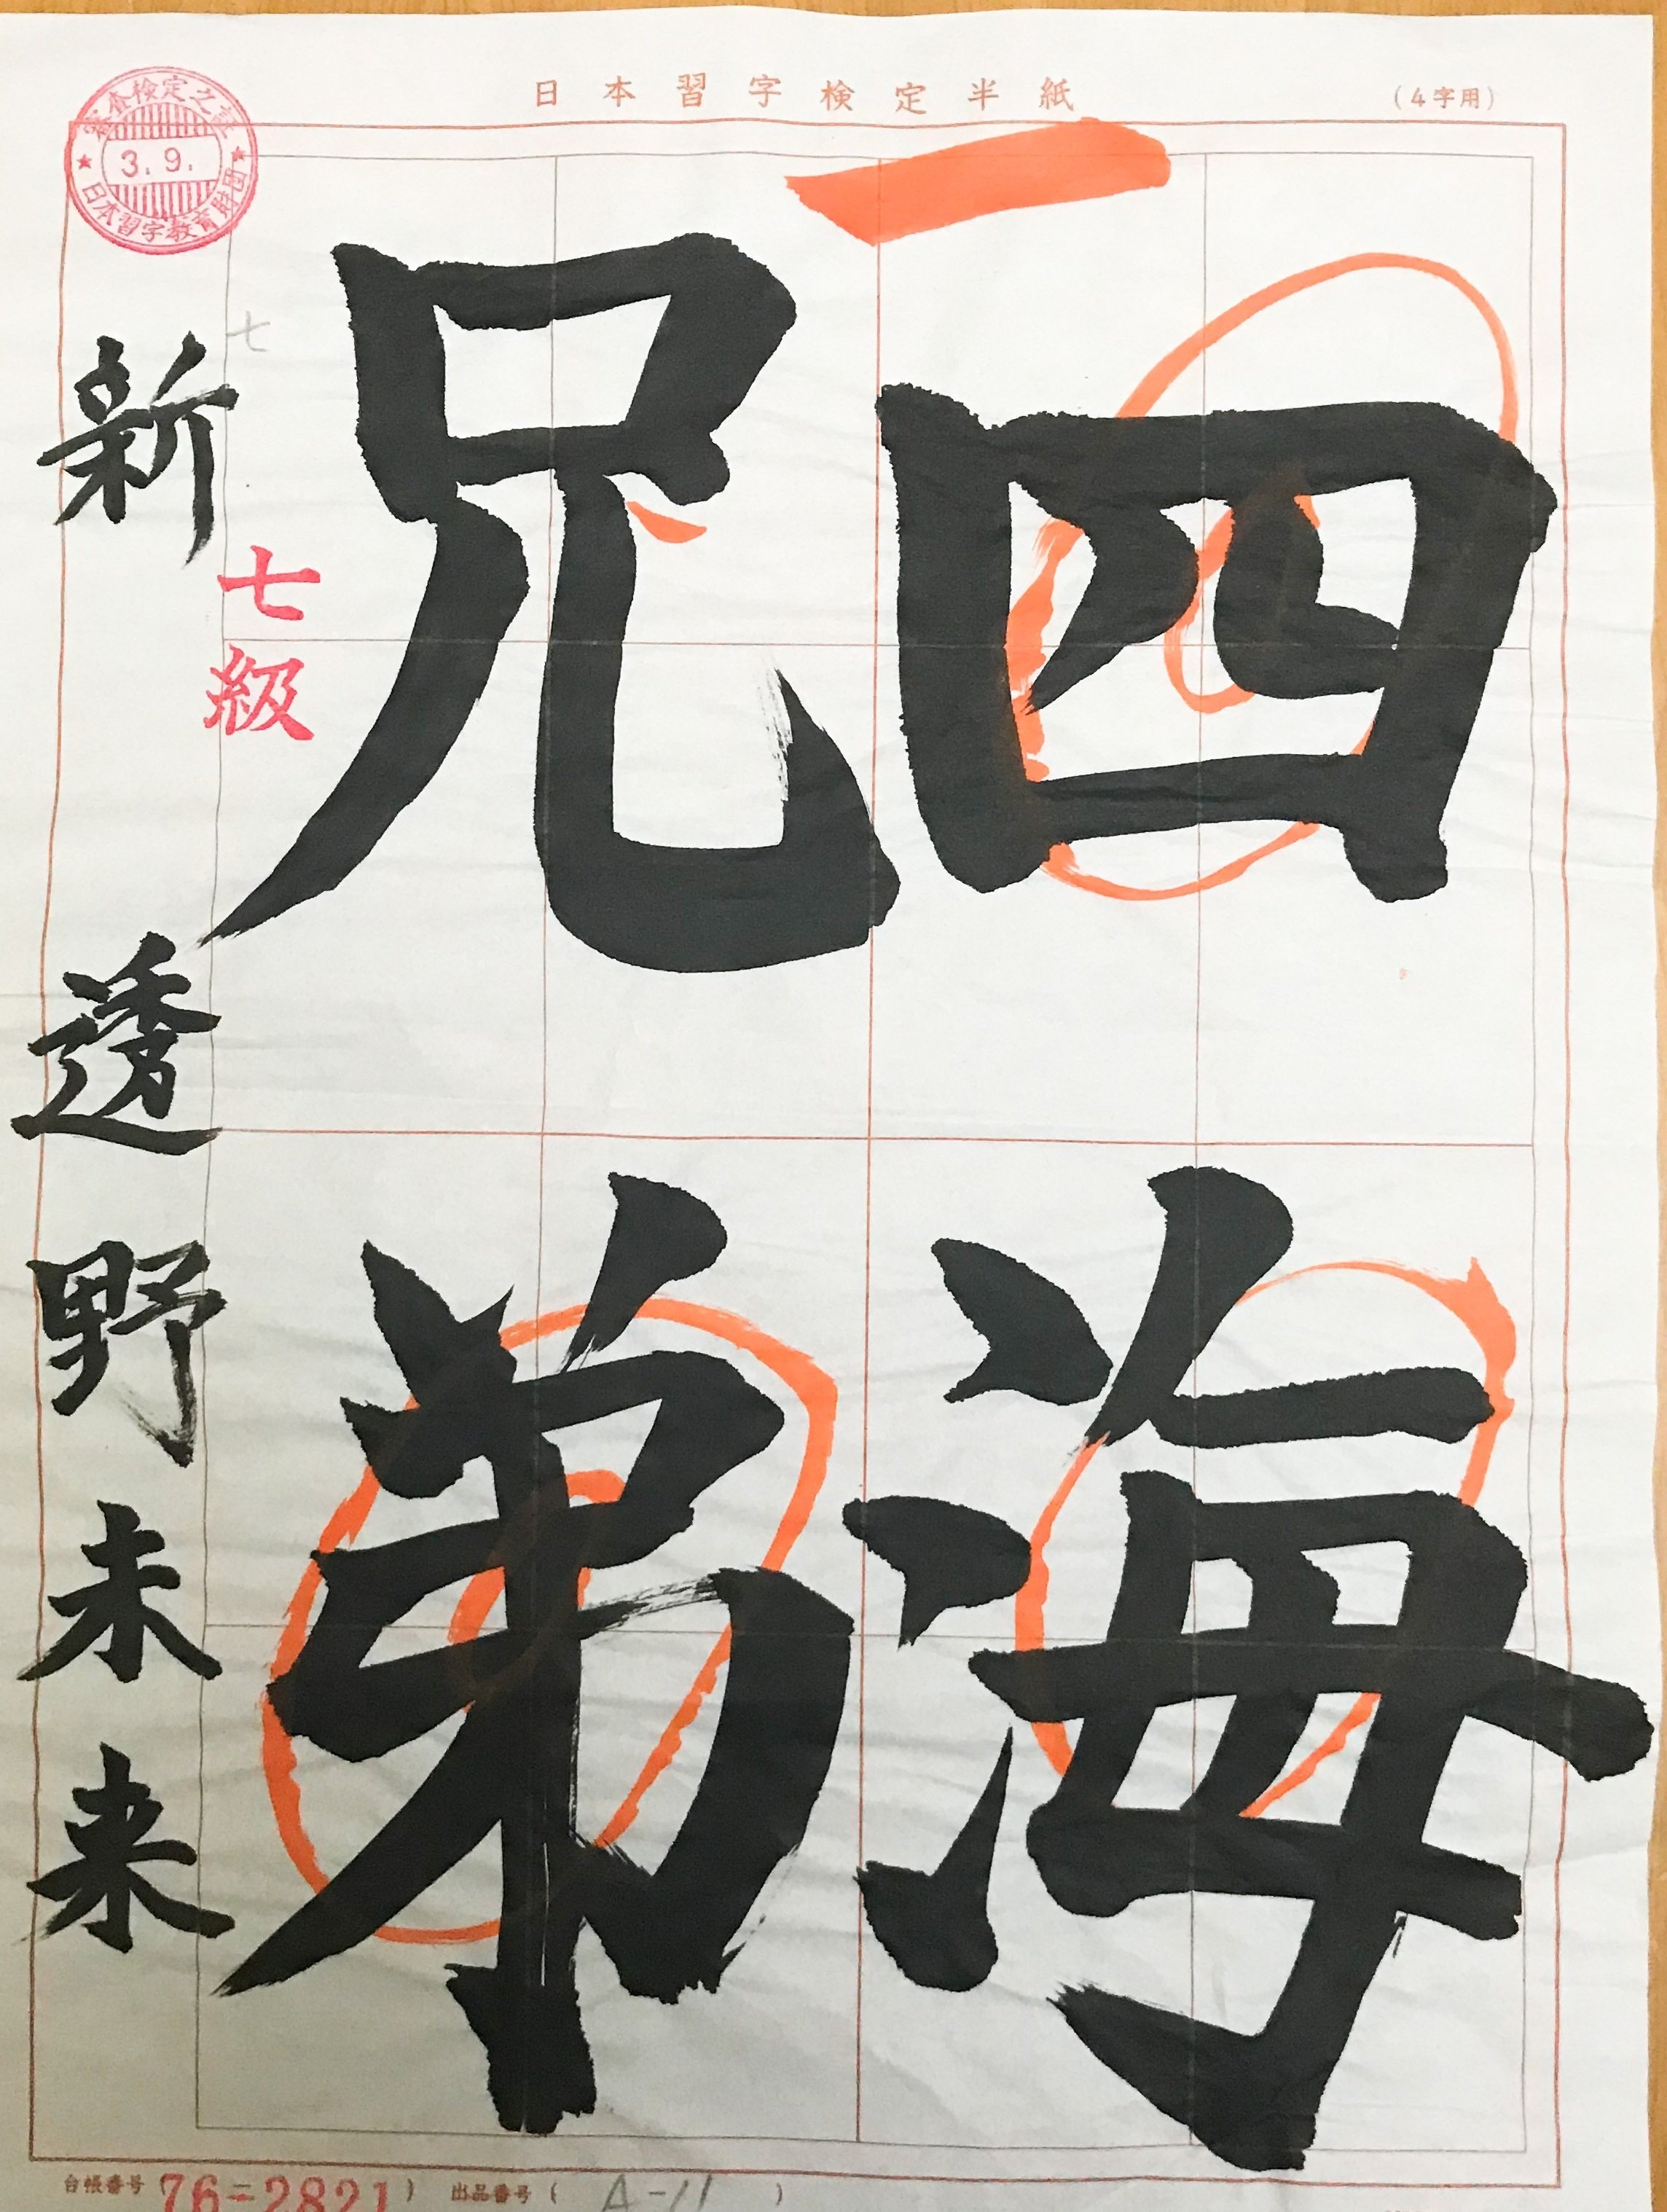 日本習字検定半紙
(4字用)
四海
兄弟
七
七級
新
透野未来
審査検定之証
3.9.
日本習字教育財団
台帳番号 76-2821)
出品番号( A-11 )